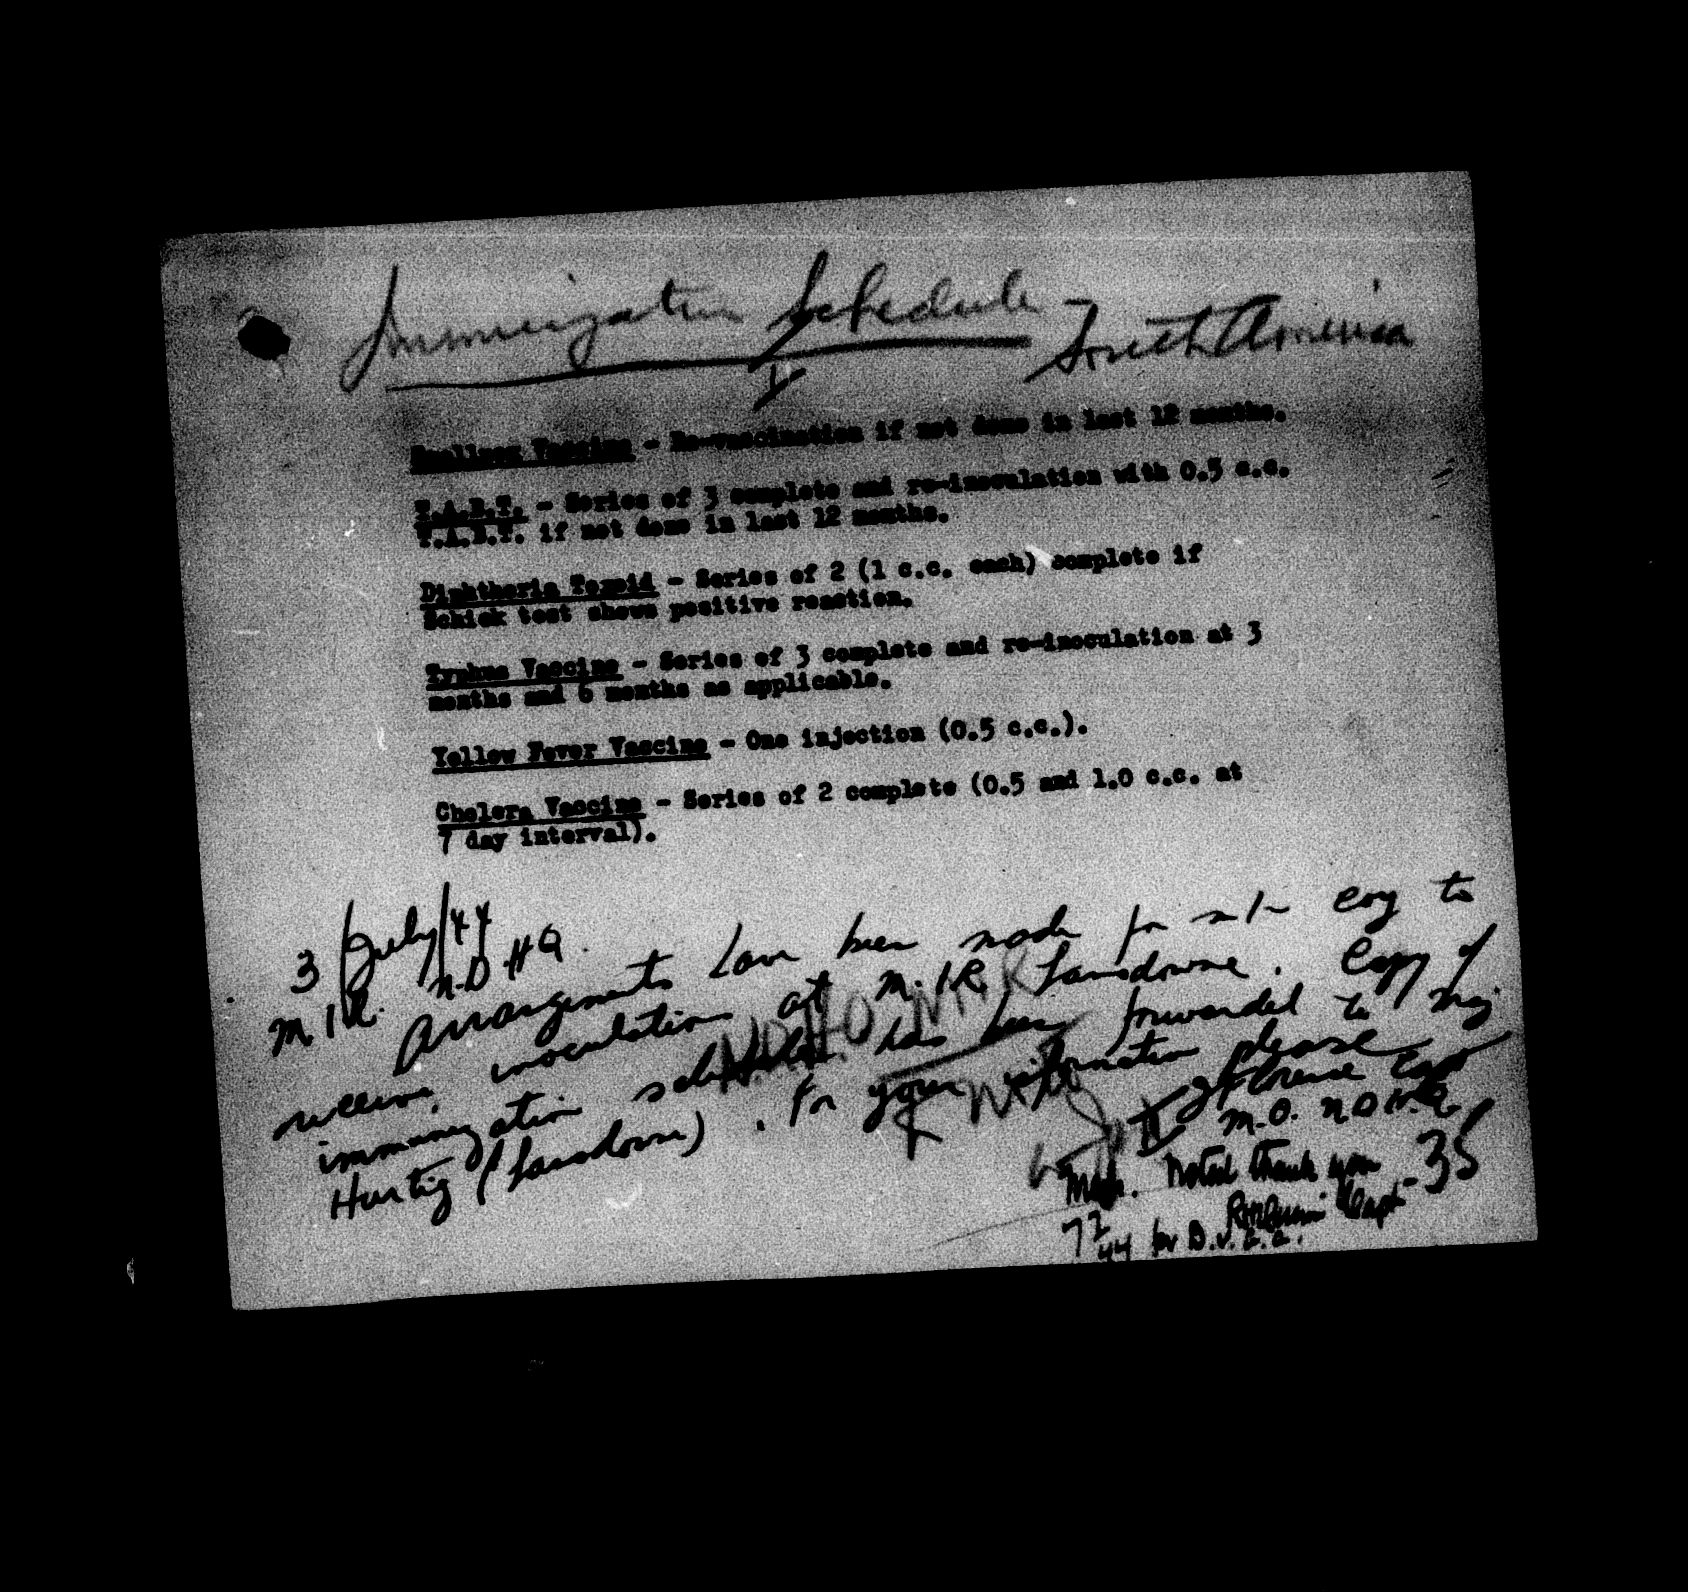 Immunization Schedule - South America
Smallpox Vaccine - Re-vaccination if not done in last 12 months.
T.A.B.T. - Series of 3 complete and re-inoculation with 0.5 c.c.
T.A.B.T. if not done in last 12 months.
Diphtheria Toxoid - Series of 2 (1 c.c. each) complete if
Schick test shows positive reaction.
Typhus Vaccine - Series of 3 complete and re-inoculation at 3
months and 6 months as applicable.
Yellow Fever Vaccine - One injection (0.5 c.c.).
Cholera Vaccine - Series of 2 complete (0.5 and 1.0 c.c. at
7 day interval).
3/July/44
M.I.R. N.D.HQ.
Arrangements have been made for m/n to
receive inoculation at M.I.R. Lansdowne. Copy of
immunization schedule has been forwarded to Maj.
Hurtig (Lansdowne). For your information please
NDHQ MIR
M.O. NDHQ
Noted thank you
Capt
7 44 for
35